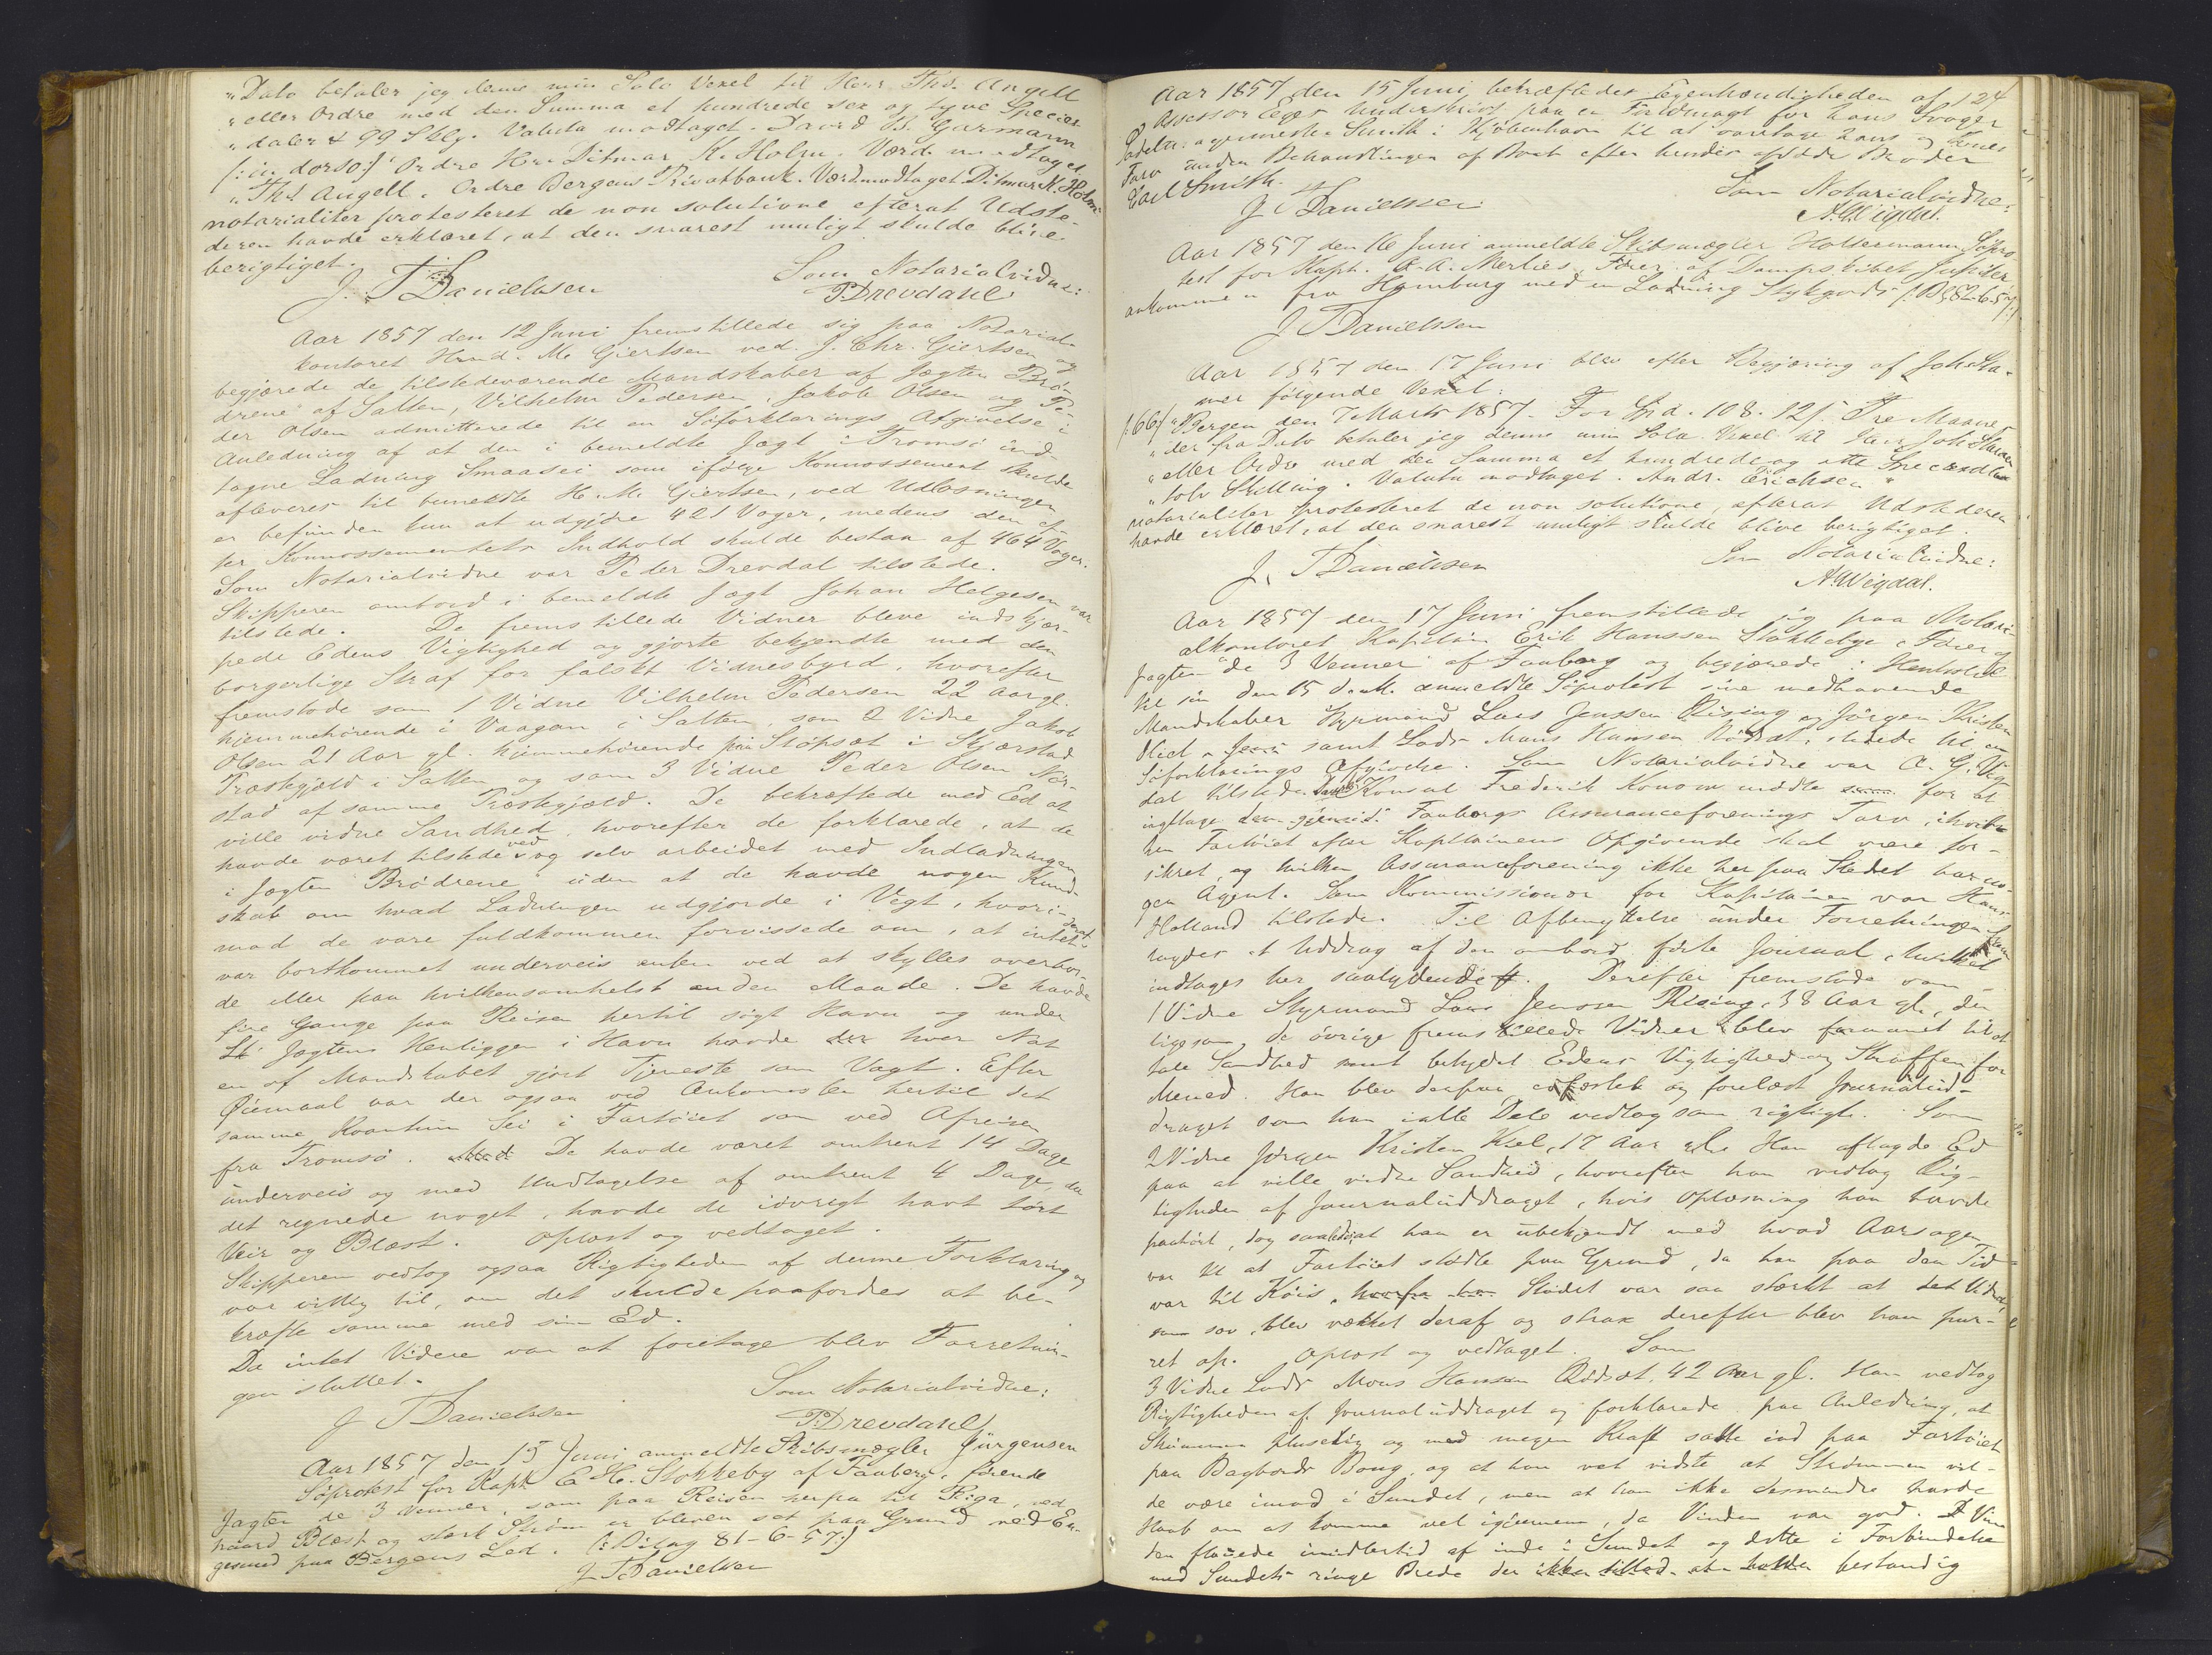 "Dato betaler jeg denne min Sola Vexel til Herr Thd. Angell
"eller Ordre med den Summa et hundrede sex og tyve Species
"daler & 99 Skly. Valuta modtaget. David B. Garmann
(: in dorso :) Ordre Herr Ditmar K. Holm. Værd. modtaget
"Thd Angell. Ordre Bergens Privatbank. Værd. modtaget Ditmar K. Holm"
notarialiter protesteret de non solutione efterat Udste-
deren havde erklæret, at den snarest muligt skulde blive
berigtiget.
Som Notarialvidne:
J. T Danielssen
P Drevdahl
Aar 1857 den 12 Juni fremstillede sig paa Notarial-
kontoret Hand. M. Giertsen ved J. Chr. Giertsen og
begjærede de tilstedeværende Mandskaber af Jægten Brø-
drene af Salten, Vilhelm Pedersen, Jakob Olsen og Pe-
der Olsen admitterede til en Søforklarings Afgivelse i
Anledning af at den i bemeldte Jægt i Tromsø ind-
tagne Ladning Smaasei som ifølge Konnossement skulde
afleveres til bemeldte H. M. Giertsen, ved Udlosningen
er befunden kun at udgjøre 421 Voger, medens den ef-
ter Konnossementets Indhold skulde bestaa af 464 Voger.
Som Notarialvidne var Peder Drevdal tilstede.
Skipperen ombord i bemeldte Jægt Johan Helgesen var
tilstede. De fremstillede Vidner bleve indskjær-
pede Edens Vigtighed og gjorte bekjendte med den
borgerlige Straf for falskt Vidnesbyrd, hvorefter
fremstode som 1 Vidne Vilhelm Pedersen 22 Aar gl.
hjemmehørende i Vaagan i Salten, som 2 Vidne Jakob
Olsen 21 Aar gl. hjemmehørende paa Støpsæt i Skjærstad
Præstegjæld i Salten og som 3 Vidne Peder Olsen Næs-
stad af samme Præstegjæld. De bekræftede med Ed at
ville vidne Sandhed, hvorefter de forklarede, at de
havde været tilstede ved og selv arbeidet med Indladningen
i Jægten Brødrene uden at de havde nogen Kund-
skab om hvad Ladningen udgjorde i Vægt, hvori-
mod de vare fuldkommen forvissede om, at intet deraf
var bortkommet underveis enten ved at skylles overbor-
de eller paa hvilkensomhelst anden Maade. De havde
fire Gange paa Reisen hertil søgt Havn og under
Jægtens Henliggen i Havn havde der hver Nat
en af Mandskabet gjort Tjeneste som Vagt. Efter
Øiemaal var der ogsaa ved Ankomsten hertil det
samme Kvantum Sei i Fartøiet som ved Afreisen
fra Tromsø. De havde været omtrent 14 Dage
underveis og med Undtagelse af omtrent 4 Dage, da
det regnede noget, havde de iøvrigt havt tørt
Veir og Blæst. Oplæst og vedtaget.
Skipperen vedtog ogsaa Rigtigheden af denne Forklaring og
var villig til, om det skulde paafordres at be-
kræfte samme med sin Ed.
Da intet Videre var at foretage blev Forretnin-
gen sluttet.
Som Notarialvidne:
J T Danielssen
P Drevdahl
Aar 1857 den 15 Juni anmeldte Skibsmægler Jürgensen
Søprotest for Kapt. E. H. Stokkeby af Faaberg, førende
Jagten "de 3 Venner" som paa Reisen herfra til Riga, ved
haard Blæst og stærk Strøm er bleven sat paa Grund ved En-
gesund paa Bergens Led. (: Bilag 81-6-57:)
J T Danielssen
124
Aar 1857 den 15 Juni bekræftedes Egenhændigheden af
Assessor Eger Underskrift paa en Fuldmagt for hans Svoger
Sadelmagermester Smith i Kjøbenhavn til at varetage hans og Kones
Tarv under Behandlingen af Boet efter hendes afdøde Broder
Carl Smith.
Som Notarialvidne:
J T Danielssen
A. G. Vigdal.
Aar 1857 den 16 Juni anmeldte Skibsmægler Holtermann Søpro-
test for Kapt. A. A. Merlies, Fører af Dampskibet Jupiter
ankommen fra Hamburg med en Ladning Stykgods (: Bl 82-6-57:)
J T Danielssen
Aar 1857 den 17 Juni blev efter Begjæring af Joh Sta-
mer følgende Vexel:
(:66:) "Bergen den 7 Marts 1857. For Spd. 108. 12 s. Tre Maane-
"der fra Dato betaler jeg denne min Sola Vexel til Herr Joh Stamer
"eller Ordre med den Summa et hundrede og otte Speciesdlr
"tolv Skilling. Valuta modtaget. Andr. Erichsen"
notarialiter protesteret de non solutione, efterat Udstederen
havde erklæret, at den snarest muligt skulde blive berigtiget.
Som Notarialvidne:
J. T Danielssen
A. G. Vigdal.
Aar 1857 den 17 Juni fremstillede sig paa Notari-
alkontoret Kaptain Erik Hanssen Stokkebye, Fører af
Jagten "de 3 Venner" af Faaberg og begjærede i Henhold
til sin den 15 d. M. anmeldte Søprotest sine medhavende
Mandskaber Styrmand Lars Jenssen Rising og Jørgen Kristen
Kiel samt Lods Mons Hansen Rødsæt, stedede til en
Søforklarings Afgivelse. Som Notarialvidne var A. G. Vig-
dal tilstede. Dansk Konsul Frederik Konow mødte for at
iagttage Faaborgs Assuranceforenings Tarv, i hvil-
ken Fartøiet efter Kaptainens Opgivende skal være for-
sikret, og hvilken Assuranceforening ikke her paa Stedet har no-
gen Agent. Som Kommissionær for Kaptainen var Hans
Holland tilstede. Til Afbenyttelse under Forretningen frem-
lagdes et Uddrag af den ombord førte Journal, hvilket
indtages her saalydende #. Derefter fremstode som
1 Vidne Styrmand Lars Jenssen Rising, 38 Aar gl., der
ligesom de øvrige fremstillede Vidner blev formanet til at
tale Sandhed samt betydet Edens Vigtighed og Straffen for
Mened. Han blev derpaa edfæstet og forelæst Journalud-
draget som han i alle Dele vedtog som rigtigt. Som
2 Vidne Jørgen Kristen Kiel, 17 Aar gl. Han aflagde Ed
paa at ville vidne Sandhed, hvorefter han vedtog Rig-
tigheden af Journaluddraget, hvis Oplæsning han havde
paahørt, dog saaledes at han er ubekjendt med hvad Aarsagen
var til at Fartøiet stødte paa Grund, da han paa den Tid
var til Køis, Stødet var saa stærkt at det Vidnet,
som sov, blev vækket deraf og strax derefter blev han pur-
ret op. Oplæst og vedtaget. Som
3 Vidne Lods Mons Hansen Rødsæt, 42 Aar gl. Han vedtog
Rigtigheden af Journaluddraget og forklarede paa Anledning, at
Strømmen pluselig og med megen Kraft satte ind paa Fartøiet
paa Bagbords Boug, og at han vel vidste at Strømmen vil-
de være imod i Sundet, men at han ikke desmindre havde
Haab om at komme vel igjennem, da Vinden var god. Vin-
den fløiede imidlertid af inde i Sundet og dette i Forbindelse
med Sundets ringe Brede der ikke tillod at holde bestandig